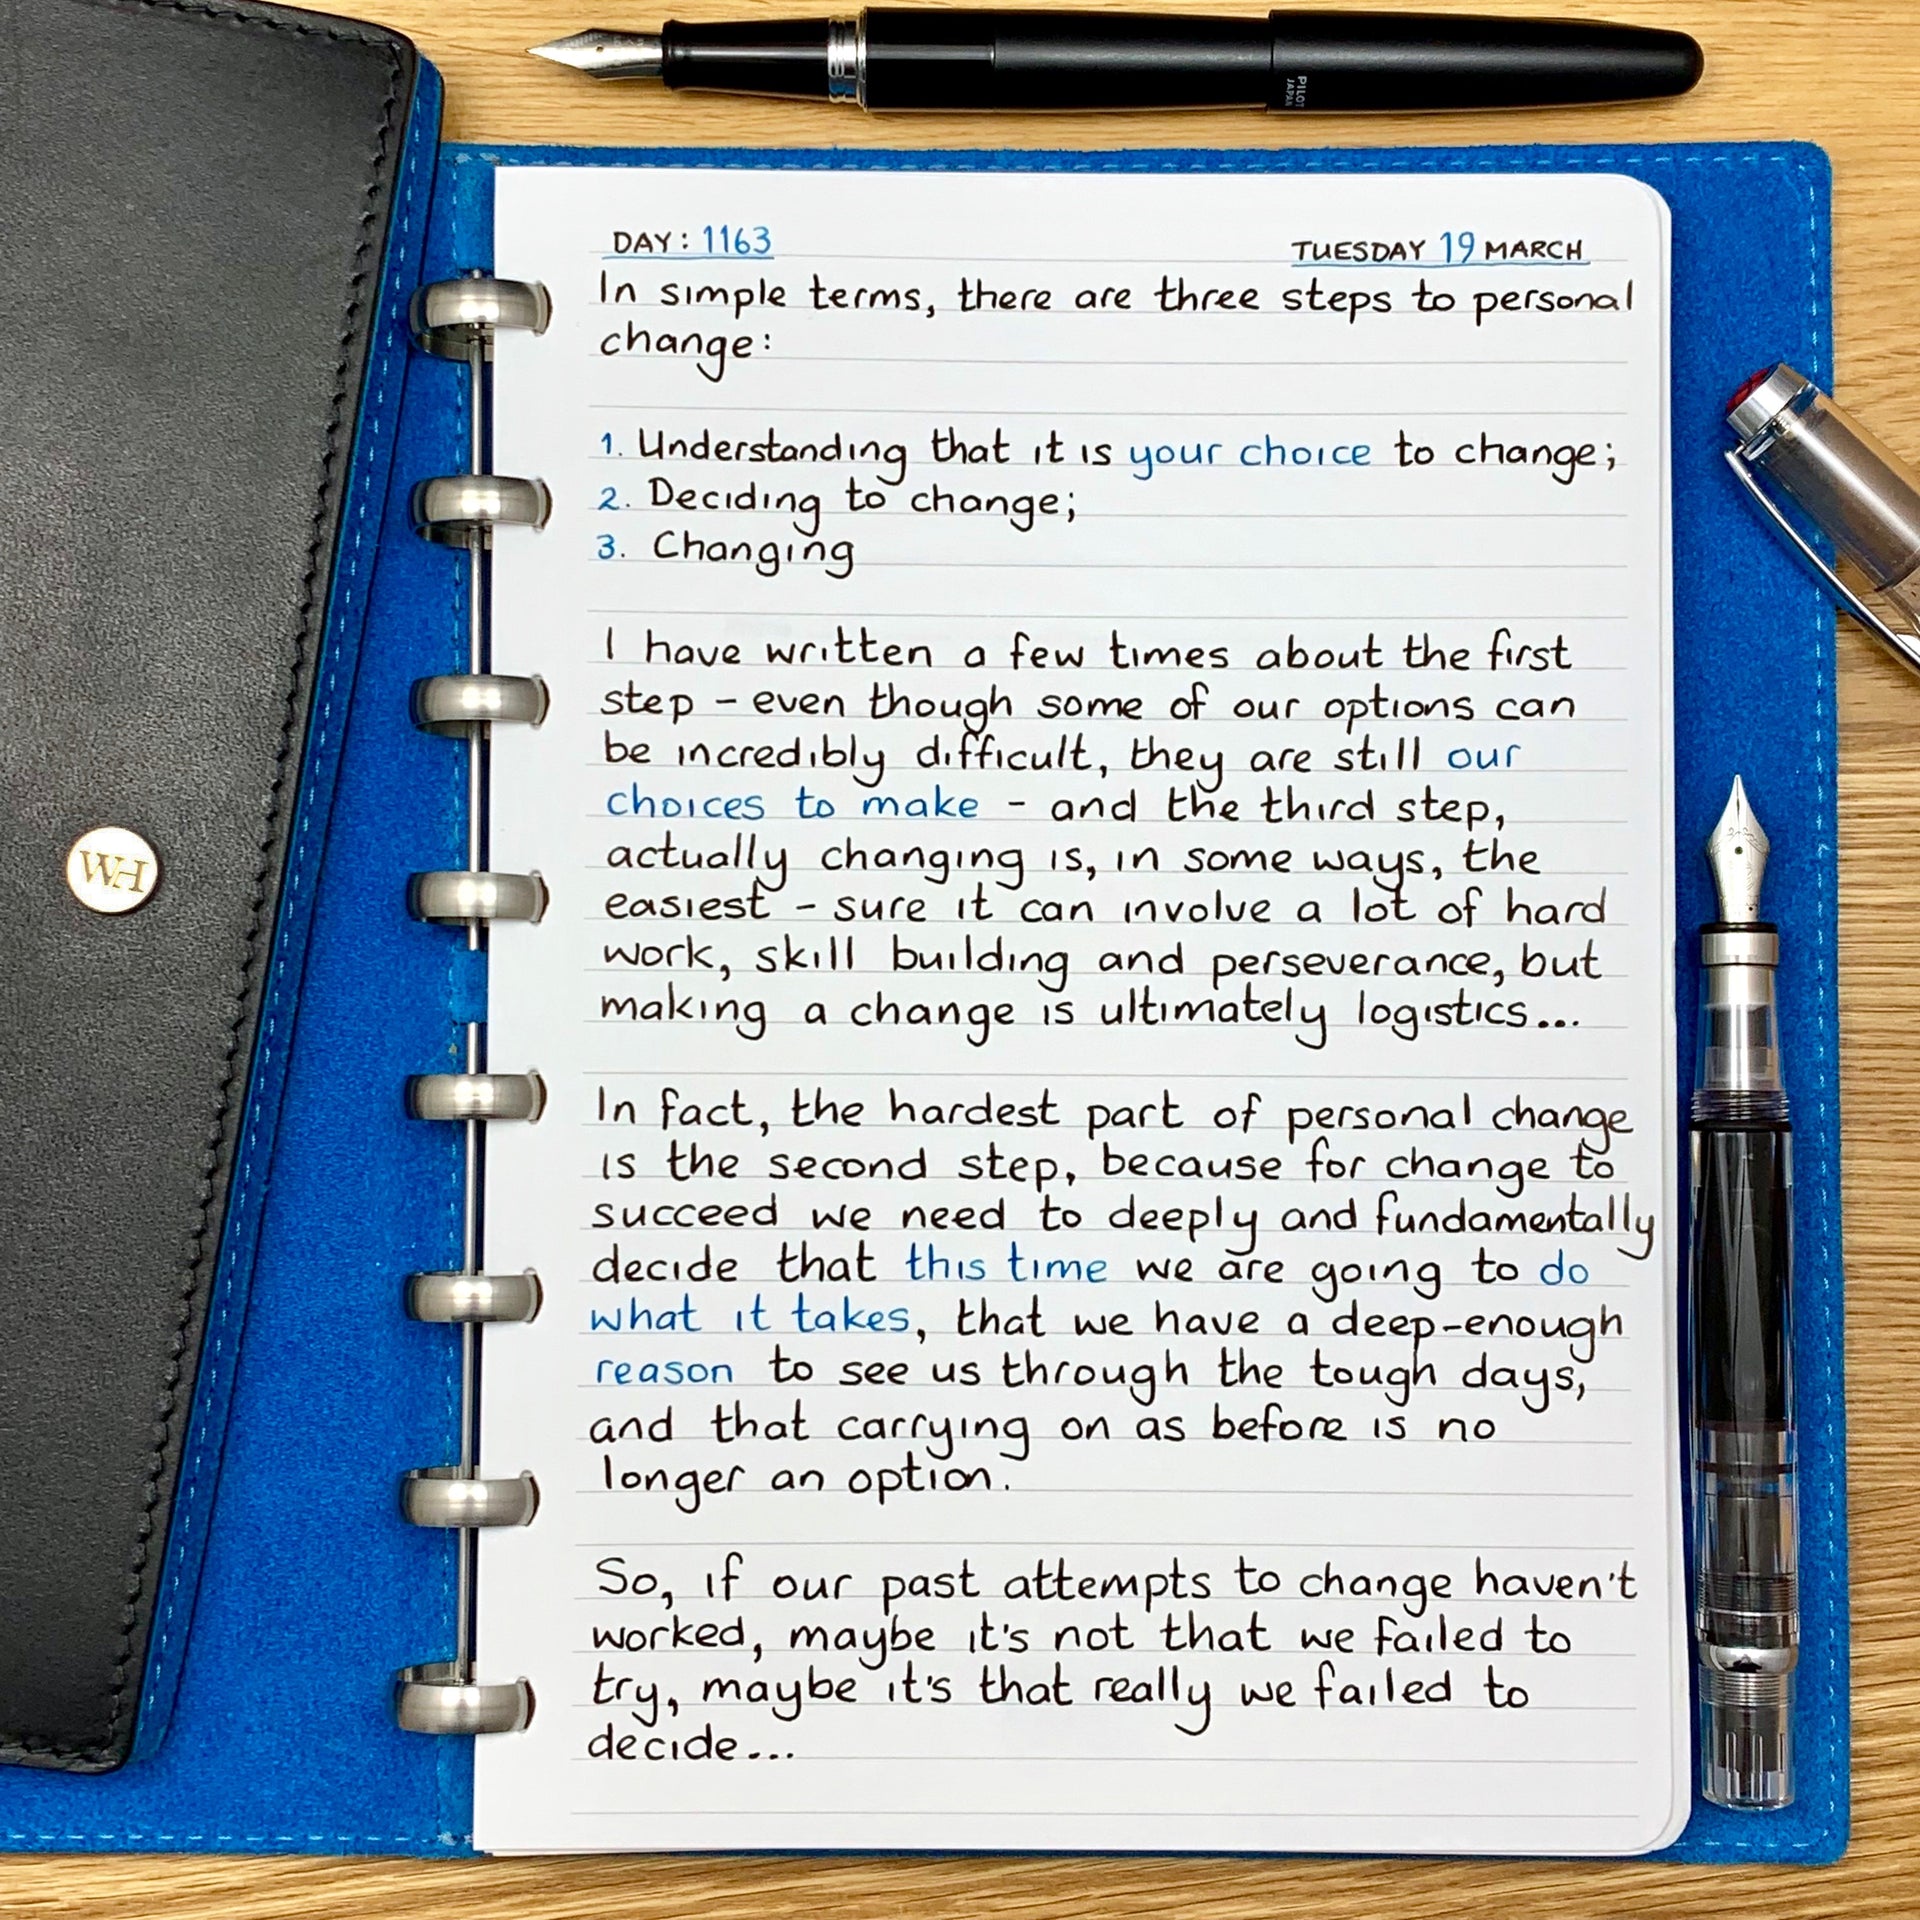 PILOT
JAPAN
DAY: 1163
TUESDAY 19 MARCH
In simple terms, there are three steps to personal
change:
1. Understanding that it is your choice to change;
2. Deciding to change;
3. Changing
I have written a few times about the first
step - even though some of our options can
be incredibly difficult, they are still our
choices to make - and the third step,
actually changing is, in some ways, the
easiest - sure it can involve a lot of hard
work, skill building and perseverance, but
making a change is ultimately logistics...
In fact, the hardest part of personal change
is the second step, because for change to
succeed we need to deeply and fundamentally
decide that this time we are going to do
what it takes, that we have a deep-enough
reason to see us through the tough days,
and that carrying on as before is no
longer an option.
So, if our past attempts to change haven't
worked, maybe it's not that we failed to
try, maybe it's that really we failed to
decide...
WH